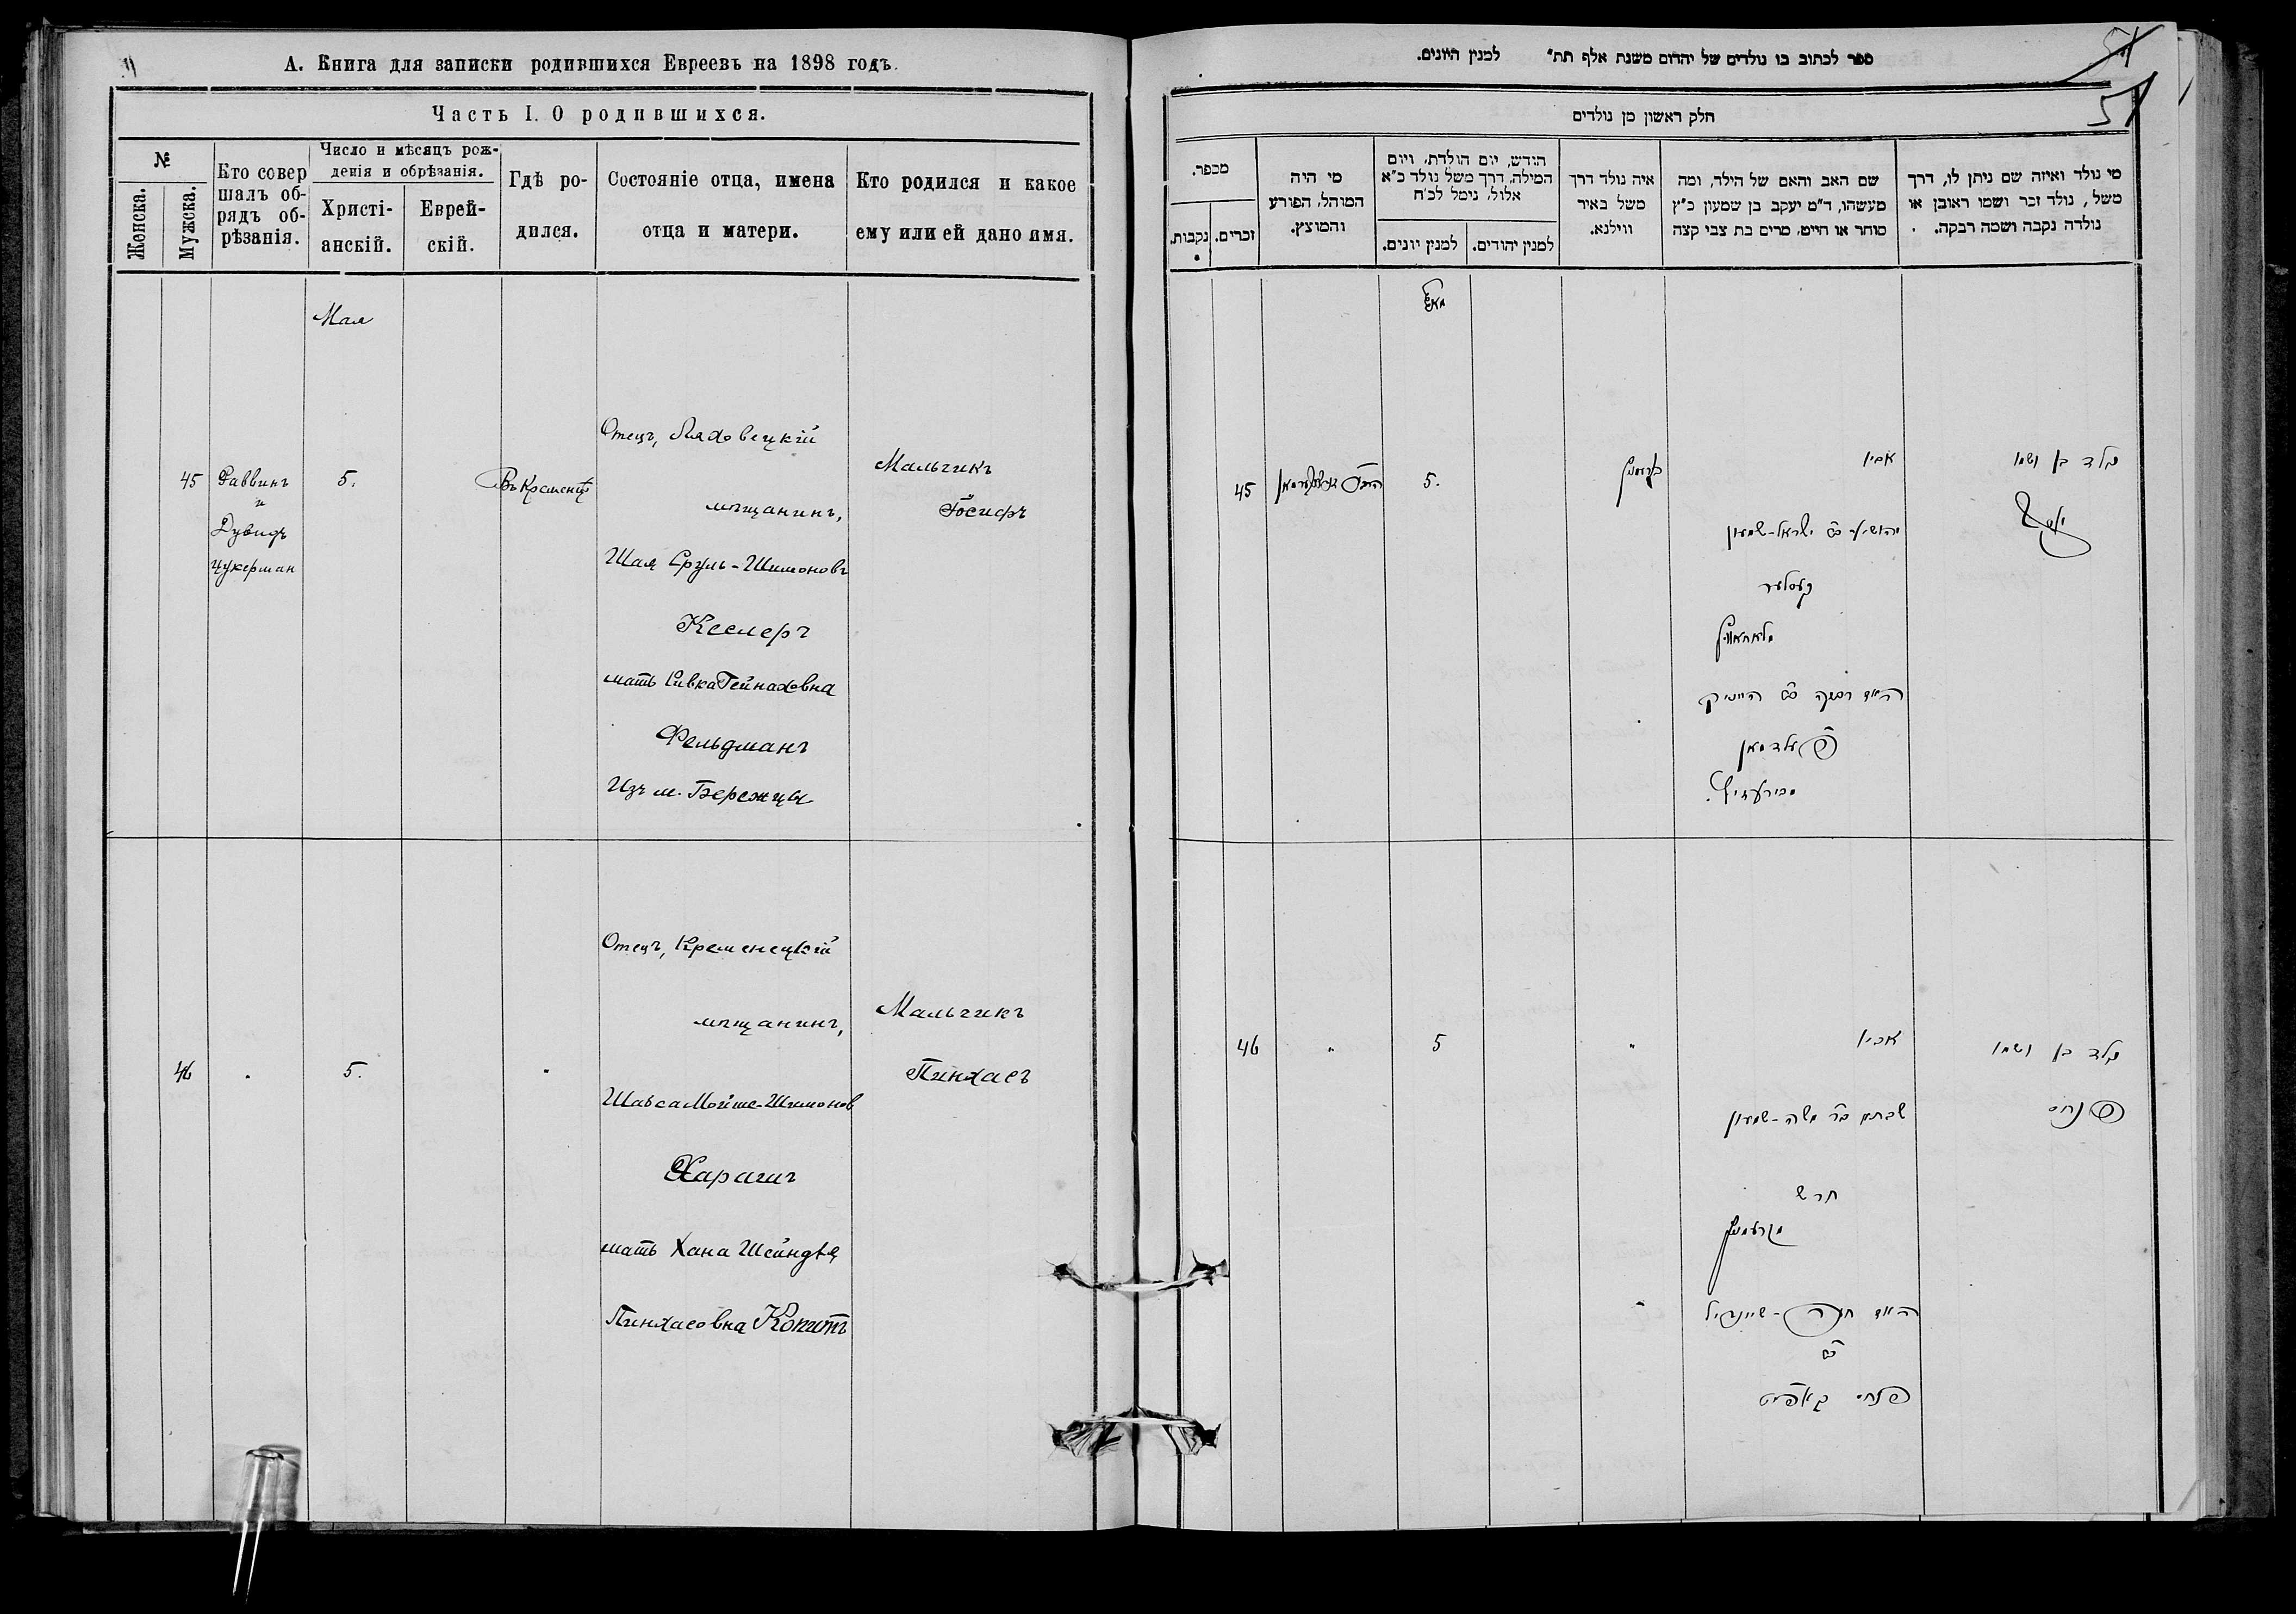 А. Книга для записки родившихся Евреевъ на 1898 годъ.
Часть I. О родившихся.
№
Женска.
Мужска.
Кто совер
шалъ об-
рядъ об-
рѣзанія.
Число и мѣсяцъ рож-
денія и обрѣзанія.
Христі-
анскій.
Еврей-
скій.
Гдѣ ро-
дился.
Состояніе отца, имена
отца и матери.
Кто родился и какое
ему или ей дано имя.
Мая
45
Раввинъ
и
Дувидъ
Цукерман
5.
Въ Кременцѣ
Отецъ, Ляховецкій
мѣщанинъ,
Шая Сруль-Шимоновъ
Кеслеръ
мать Ривка Гейнаховна
Фельдманъ
Изъ м. Бережцы
Мальчикъ
Іосифъ
46
"
5.
"
Отецъ, Кременецкій
мѣщанинъ,
Шабса Мойше-Шимонов
Харашъ
мать Хана Шейндля
Пинхасовна Копитъ
Мальчикъ
Пинхасъ
ספר לכתוב בו נולדים של יהדום משנת אלף תת" למנין היונים.
51
51
חלק ראשון מן נולדים
מכפר.
נקבות.
זכרים.
מי היה
המוהל, הפורע
והמוצץ.
הודש, יום הולדת, ויום
המילה, דרך משל נולד כ"א
אלול, נימל לכ"ח
למנין יונים.
למנין יהודים.
איה נולד דרך
משל באיר
ווילנא.
שם האב והאם של הילד, ומה
מעשהו, ד"מ יעקב בן שמעון כ"ץ
סוחר או חייט, מרים בת צבי קצה
מי נולד ואיזה שם ניתן לו, דרך
משל, נולד זכר ושמו ראובן או
נולדה נקבה ושמה רבקה.
מאי
45
5.
אביו
יהושיע ב"ר ישראל-שמעון
קעסלער
האם רבקה ב"ר היינוק
פעלדמאן
נולד בן ושמו
יוסף
46
"
5
"
אביו
שבתי ב"ר משה-שמעון
חרש
מקרעמניץ
האם חנה-שיינדיל
ב"ר
פנחס קאפיט
נולד בן ושמו
פנחס